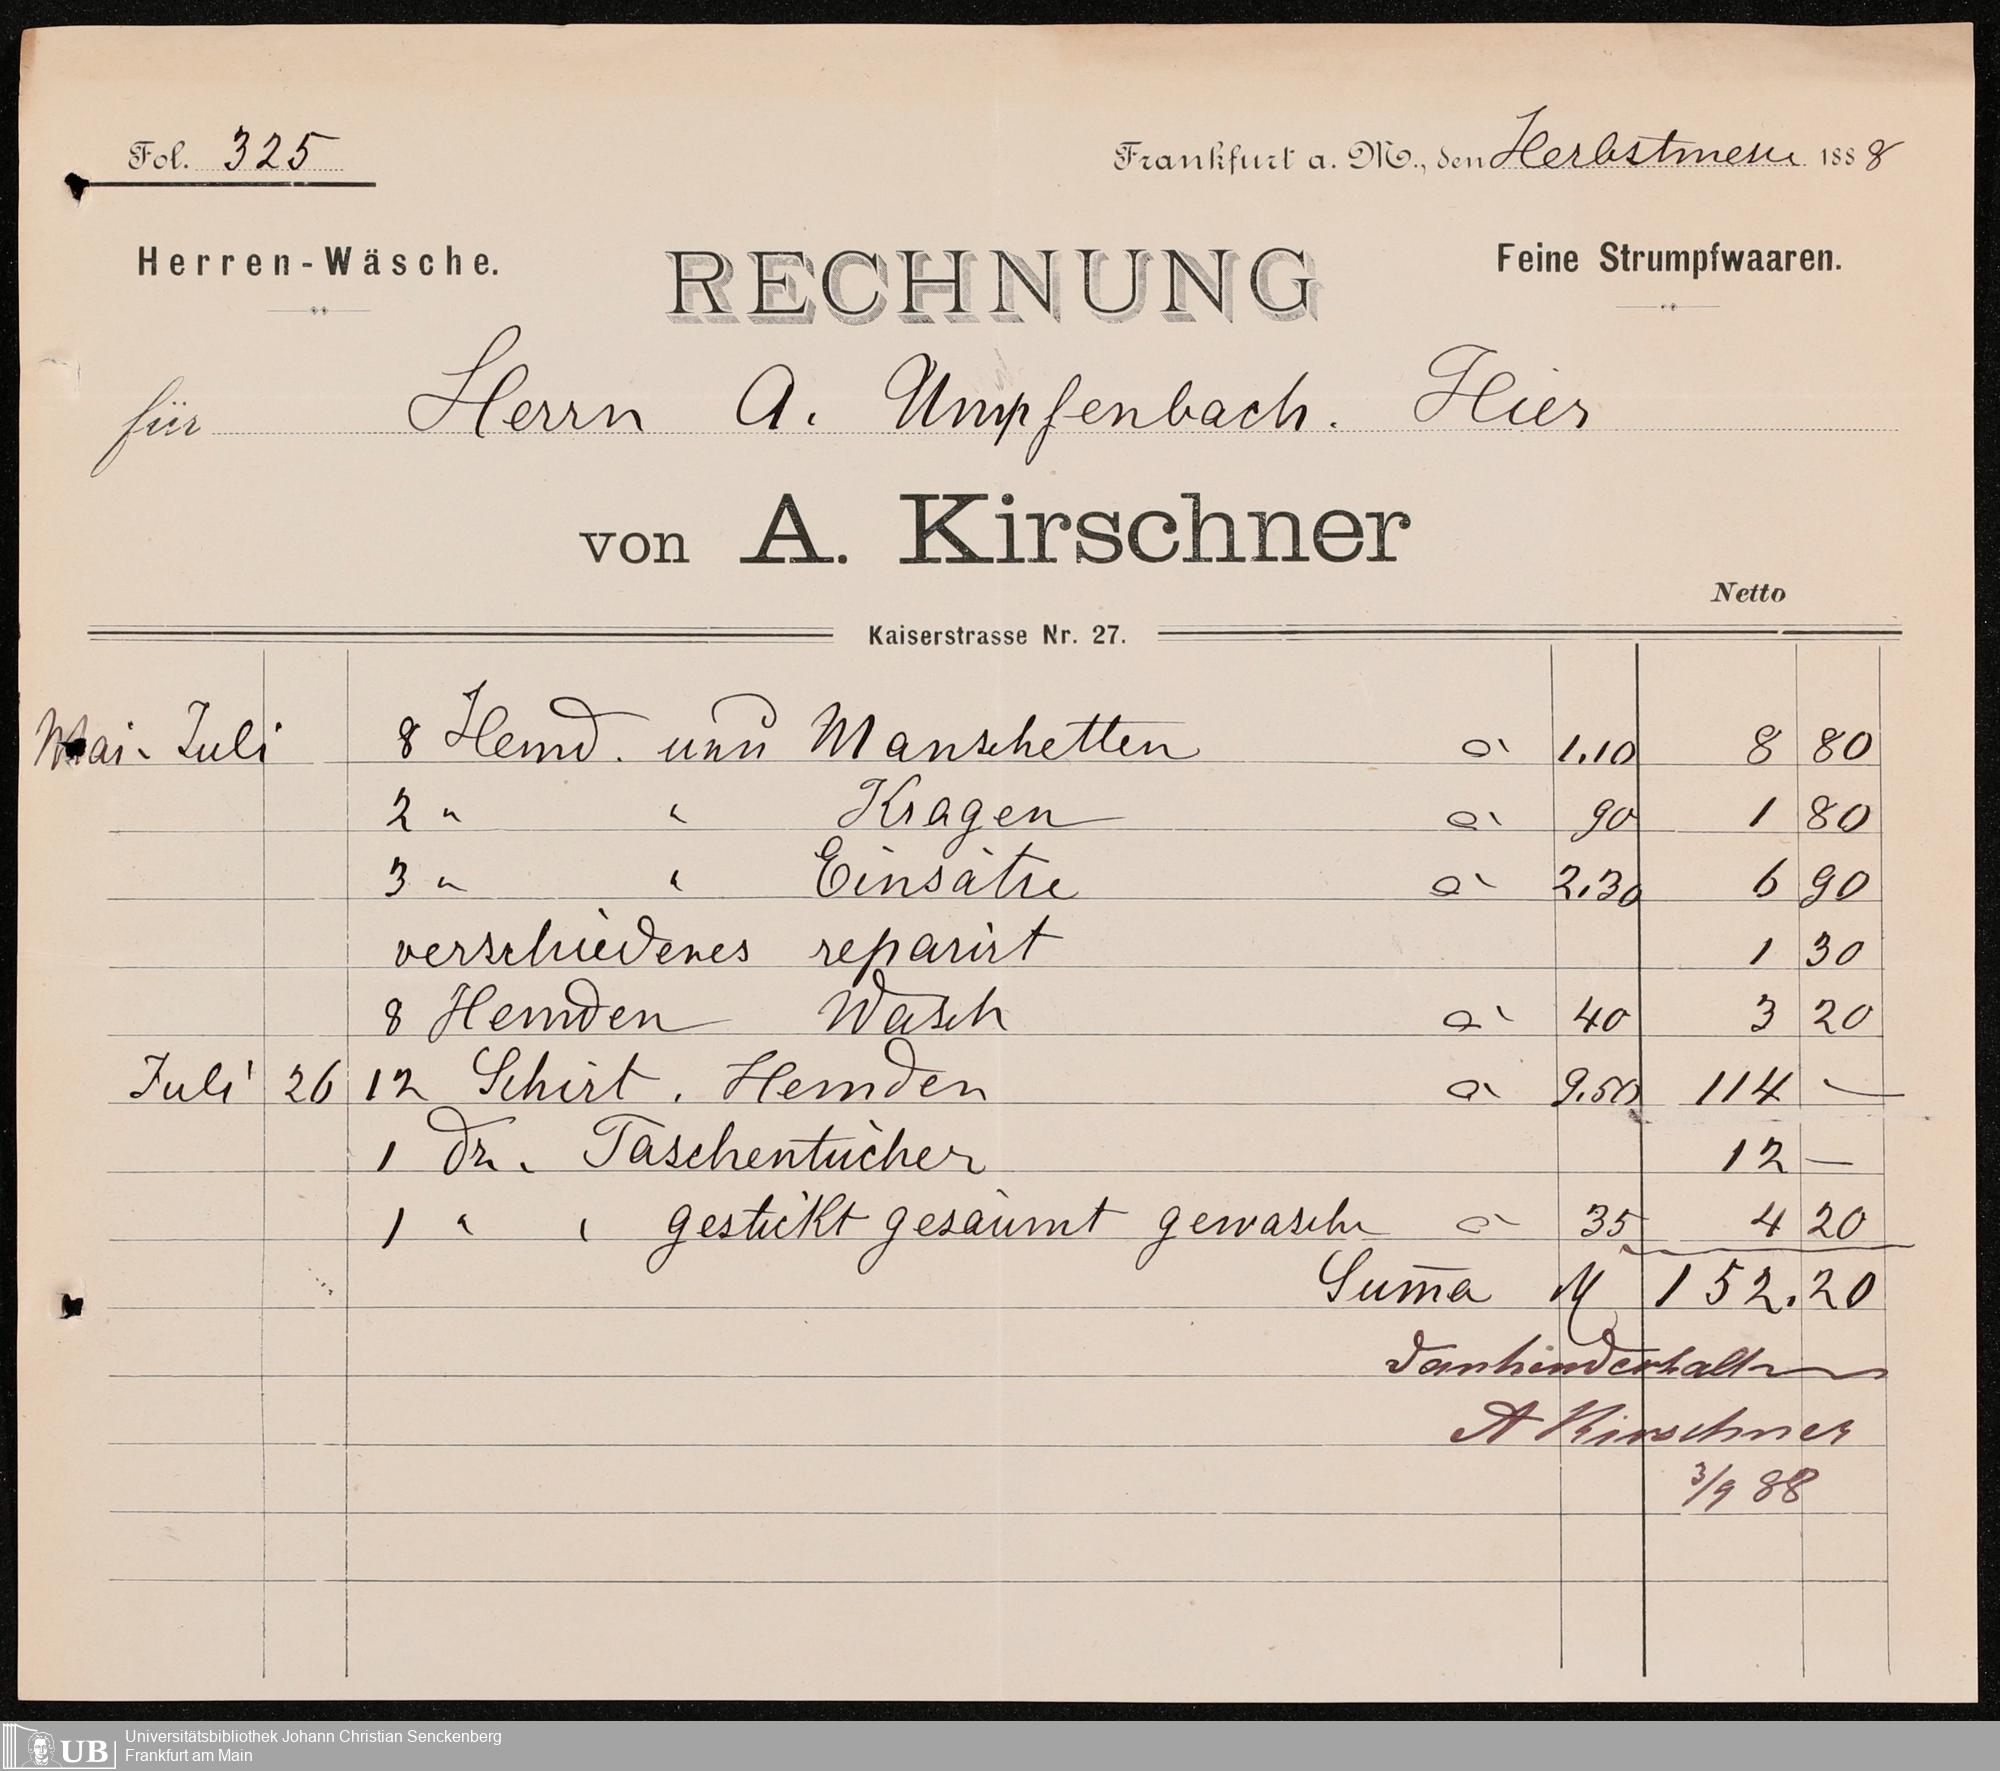 Fol. 325
Frankfurt a. M., den Herbstmesse 1888
Herren-Wäsche.
RECHNUNG
Feine Strumpfwaaren.
für Herrn A. Umpfenbach. Hier
von A. Kirschner
Netto
Kaiserstrasse Nr. 27.
Mai. Juli 8 Hemd. Manschetten a 1.10 8 80
2 " " Kragen a 90 1 80
3 " " Einsätze a 2.30 6 90
verschiedenes reparirt 1 30
8 Hemden Wasch a 40 3 20
Juli 26 12 Schirt. Hemden a 9.50 114 —
1 Dz. Taschentücher 12 —
1 " " gestickt gesäumt gewasch a 35 4 20
Suma M 152.20
dankend erhalten
A Kirschner
3/9 88
Universitätsbibliothek Johann Christian Senckenberg
Frankfurt am Main
UB